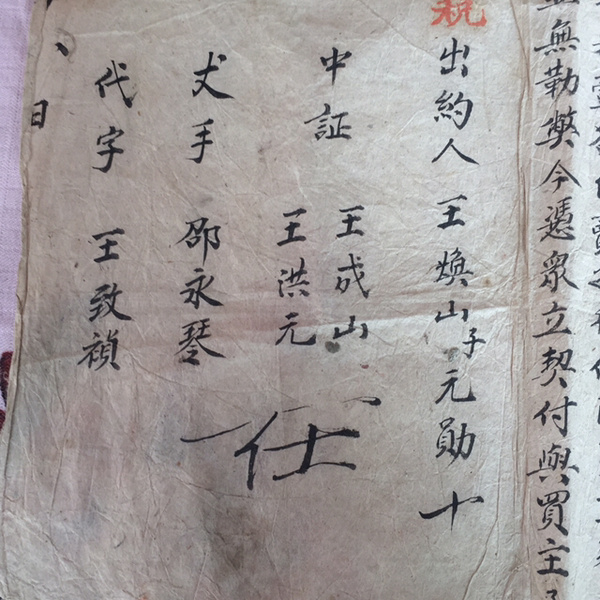 無勒獘今憑眾立契付與買主
祝
出約人 王煥山子元勛 十
中証 王成山
王洪元
任
丈手 邵永琴
代字 王致禎
日